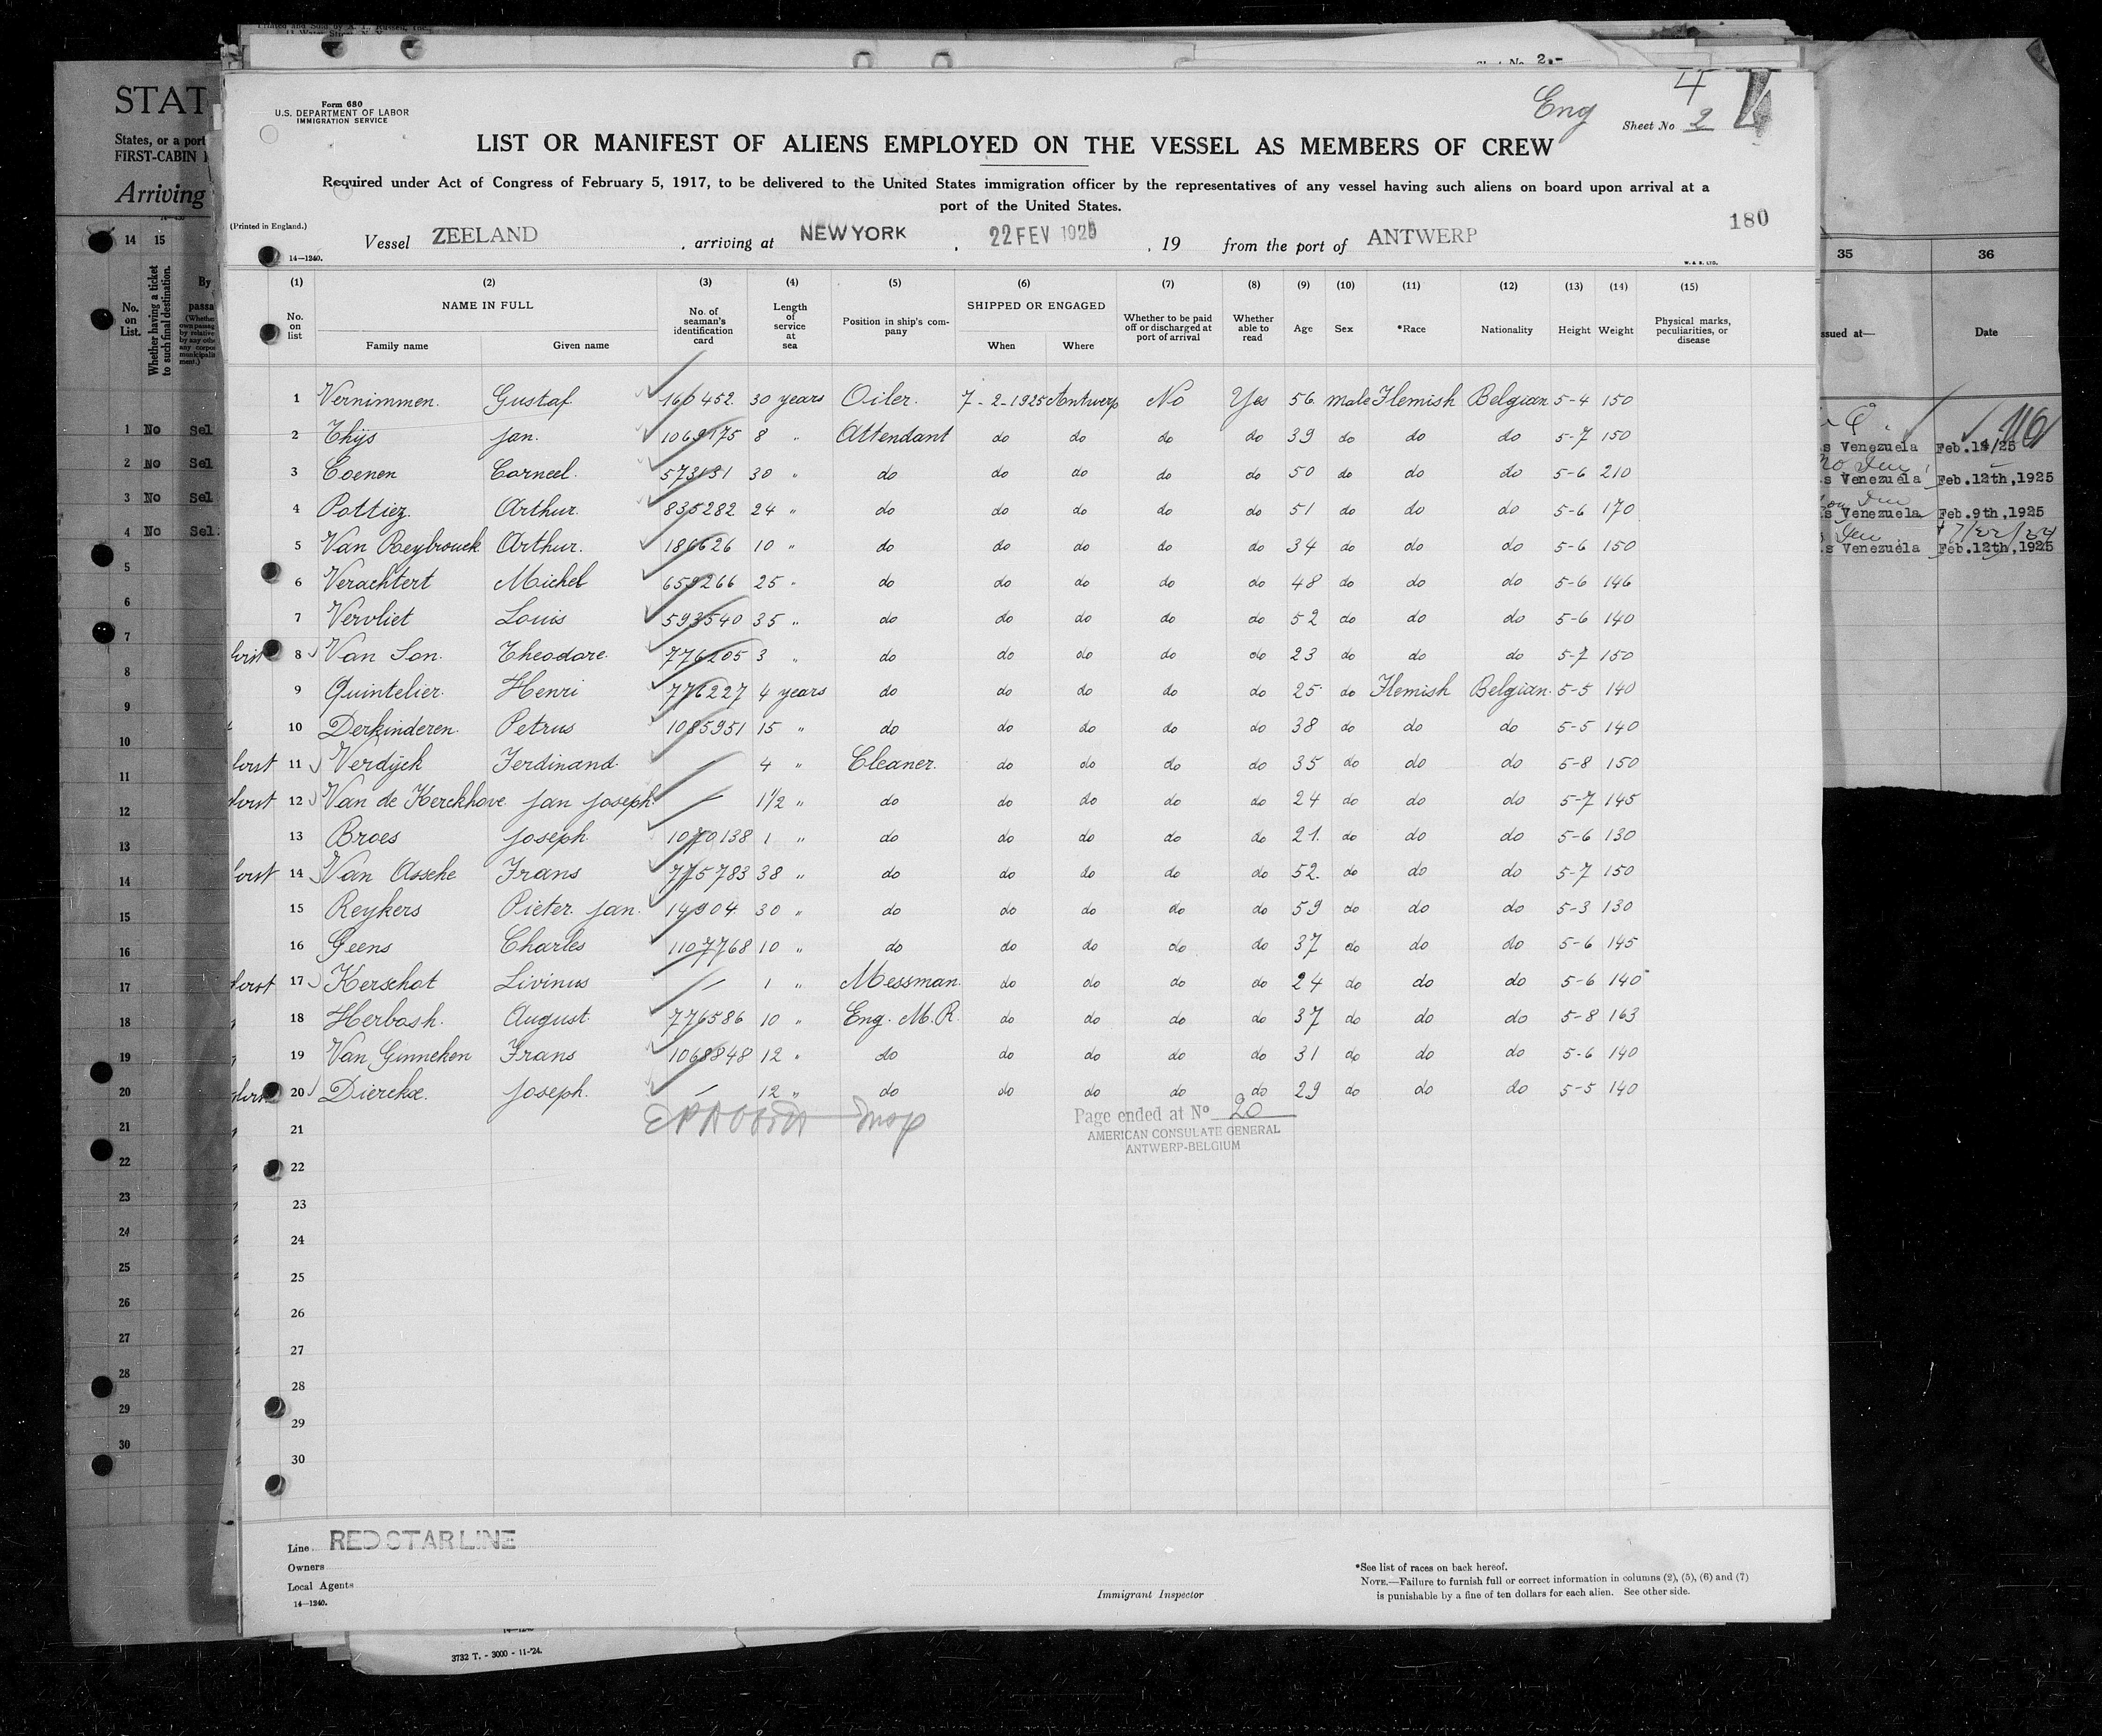 Form 680
U.S. DEPARTMENT OF LABOR
IMMIGRATION SERVICE
Eng
4
Sheet No 2
LIST OR MANIFEST OF ALIENS EMPLOYED ON THE VESSEL AS MEMBERS OF CREW
Required under Act of Congress of February 5, 1917, to be delivered to the United States immigration officer by the representatives of any vessel having such aliens on board upon arrival at a
port of the United States.
180
(Printed in England.)
Vessel ZEELAND, arriving at NEW YORK, 22 FEV 1925, 19 from the port of ANTWERP
14—1240.
W. & S. LTD.
(1) (2) (3) (4) (5) (6) (7) (8) (9) (10) (11) (12) (13) (14) (15)
No. on list
NAME IN FULL
Family name Given name
No. of seaman's identification card
Length of service at sea
Position in ship's company
SHIPPED OR ENGAGED
When Where
Whether to be paid off or discharged at port of arrival
Whether able to read
Age
Sex
*Race
Nationality
Height
Weight
Physical marks, peculiarities, or disease
1 Vernimmen. Gustaf 160452 30 years Oiler. 7-2-1925 Antwerp No Yes 56 male Flemish Belgian 5-4 150
2 Thijs Jan. 1069175 8 " Attendant do do do do 39 do do do 5-7 150
3 Coenen Corneel. 573131 30 " do do do do do 50 do do do 5-6 210
4 Pottiez Arthur. 835282 24 " do do do do do 51 do do do 5-6 170
5 Van Reybrouck Arthur. 186626 10 " do do do do do 34 do do do 5-6 150
6 Verachtert Michel 659266 25 " do do do do do 48 do do do 5-6 146
7 Vervliet Louis 593540 35 " do do do do do 52 do do do 5-6 140
8 Van Son. Theodore. 776205 3 " do do do do do 23 do do do 5-7 150
9 Quintelier. Henri 776227 4 years do do do do do 25 do Flemish Belgian. 5-5 140
10 Derkinderen. Petrus 1085951 15 " do do do do do 38 do do do 5-5 140
11 Verdijck Ferdinand. — 4 " Cleaner. do do do do 35 do do do 5-8 150
12 Van de Kerckhove Jan Joseph. — 1½ " do do do do do 24 do do do 5-7 145
13 Broes Joseph. 1070138 1 " do do do do do 21. do do do 5-6 130
14 Van Assche Frans 775783 38 " do do do do do 52. do do do 5-7 150
15 Reykers Pieter Jan. 14904 30 " do do do do do 59 do do do 5-3 130
16 Geens Charles 1107768 10 " do do do do do 37 do do do 5-6 145
17 Kerschot Livinus — 1 " Messman. do do do do 24 do do do 5-6 140
18 Herbosh. August. 776586 10 " Eng. M.R. do do do do 37 do do do 5-8 163
19 Van Ginneken Frans 1068848 12 " do do do do do 31 do do do 5-6 140
20 Dierckx. Joseph. — 12 " do do do do do 29 do do do 5-5 140
21
Page ended at No 20
AMERICAN CONSULATE GENERAL
ANTWERP-BELGIUM
22
23
24
25
26
27
28
29
30
Line RED STAR LINE
Owners
Local Agents
14—1240.
Immigrant Inspector
*See list of races on back hereof.
NOTE.—Failure to furnish full or correct information in columns (2), (5), (6) and (7)
is punishable by a fine of ten dollars for each alien. See other side.
3732 T. - 3000 - 11-'24.
STAT
States, or a port
FIRST-CABIN
Arriving
14 15
No. on List.
Whether having a ticket to such final destination.
By
1 No Sel
2 No Sel
3 No Sel
4 No Sel
5
6
7
8
9
10
11
12
13
14
15
16
17
18
19
20
21
22
23
24
25
26
27
28
29
30
Sheet No. 2.-
35 36
ssued at— Date
s Venezuela Feb. 14/25
s Venezuela Feb. 12th, 1925
s Venezuela Feb. 9th, 1925
s Venezuela Feb. 12th, 1925